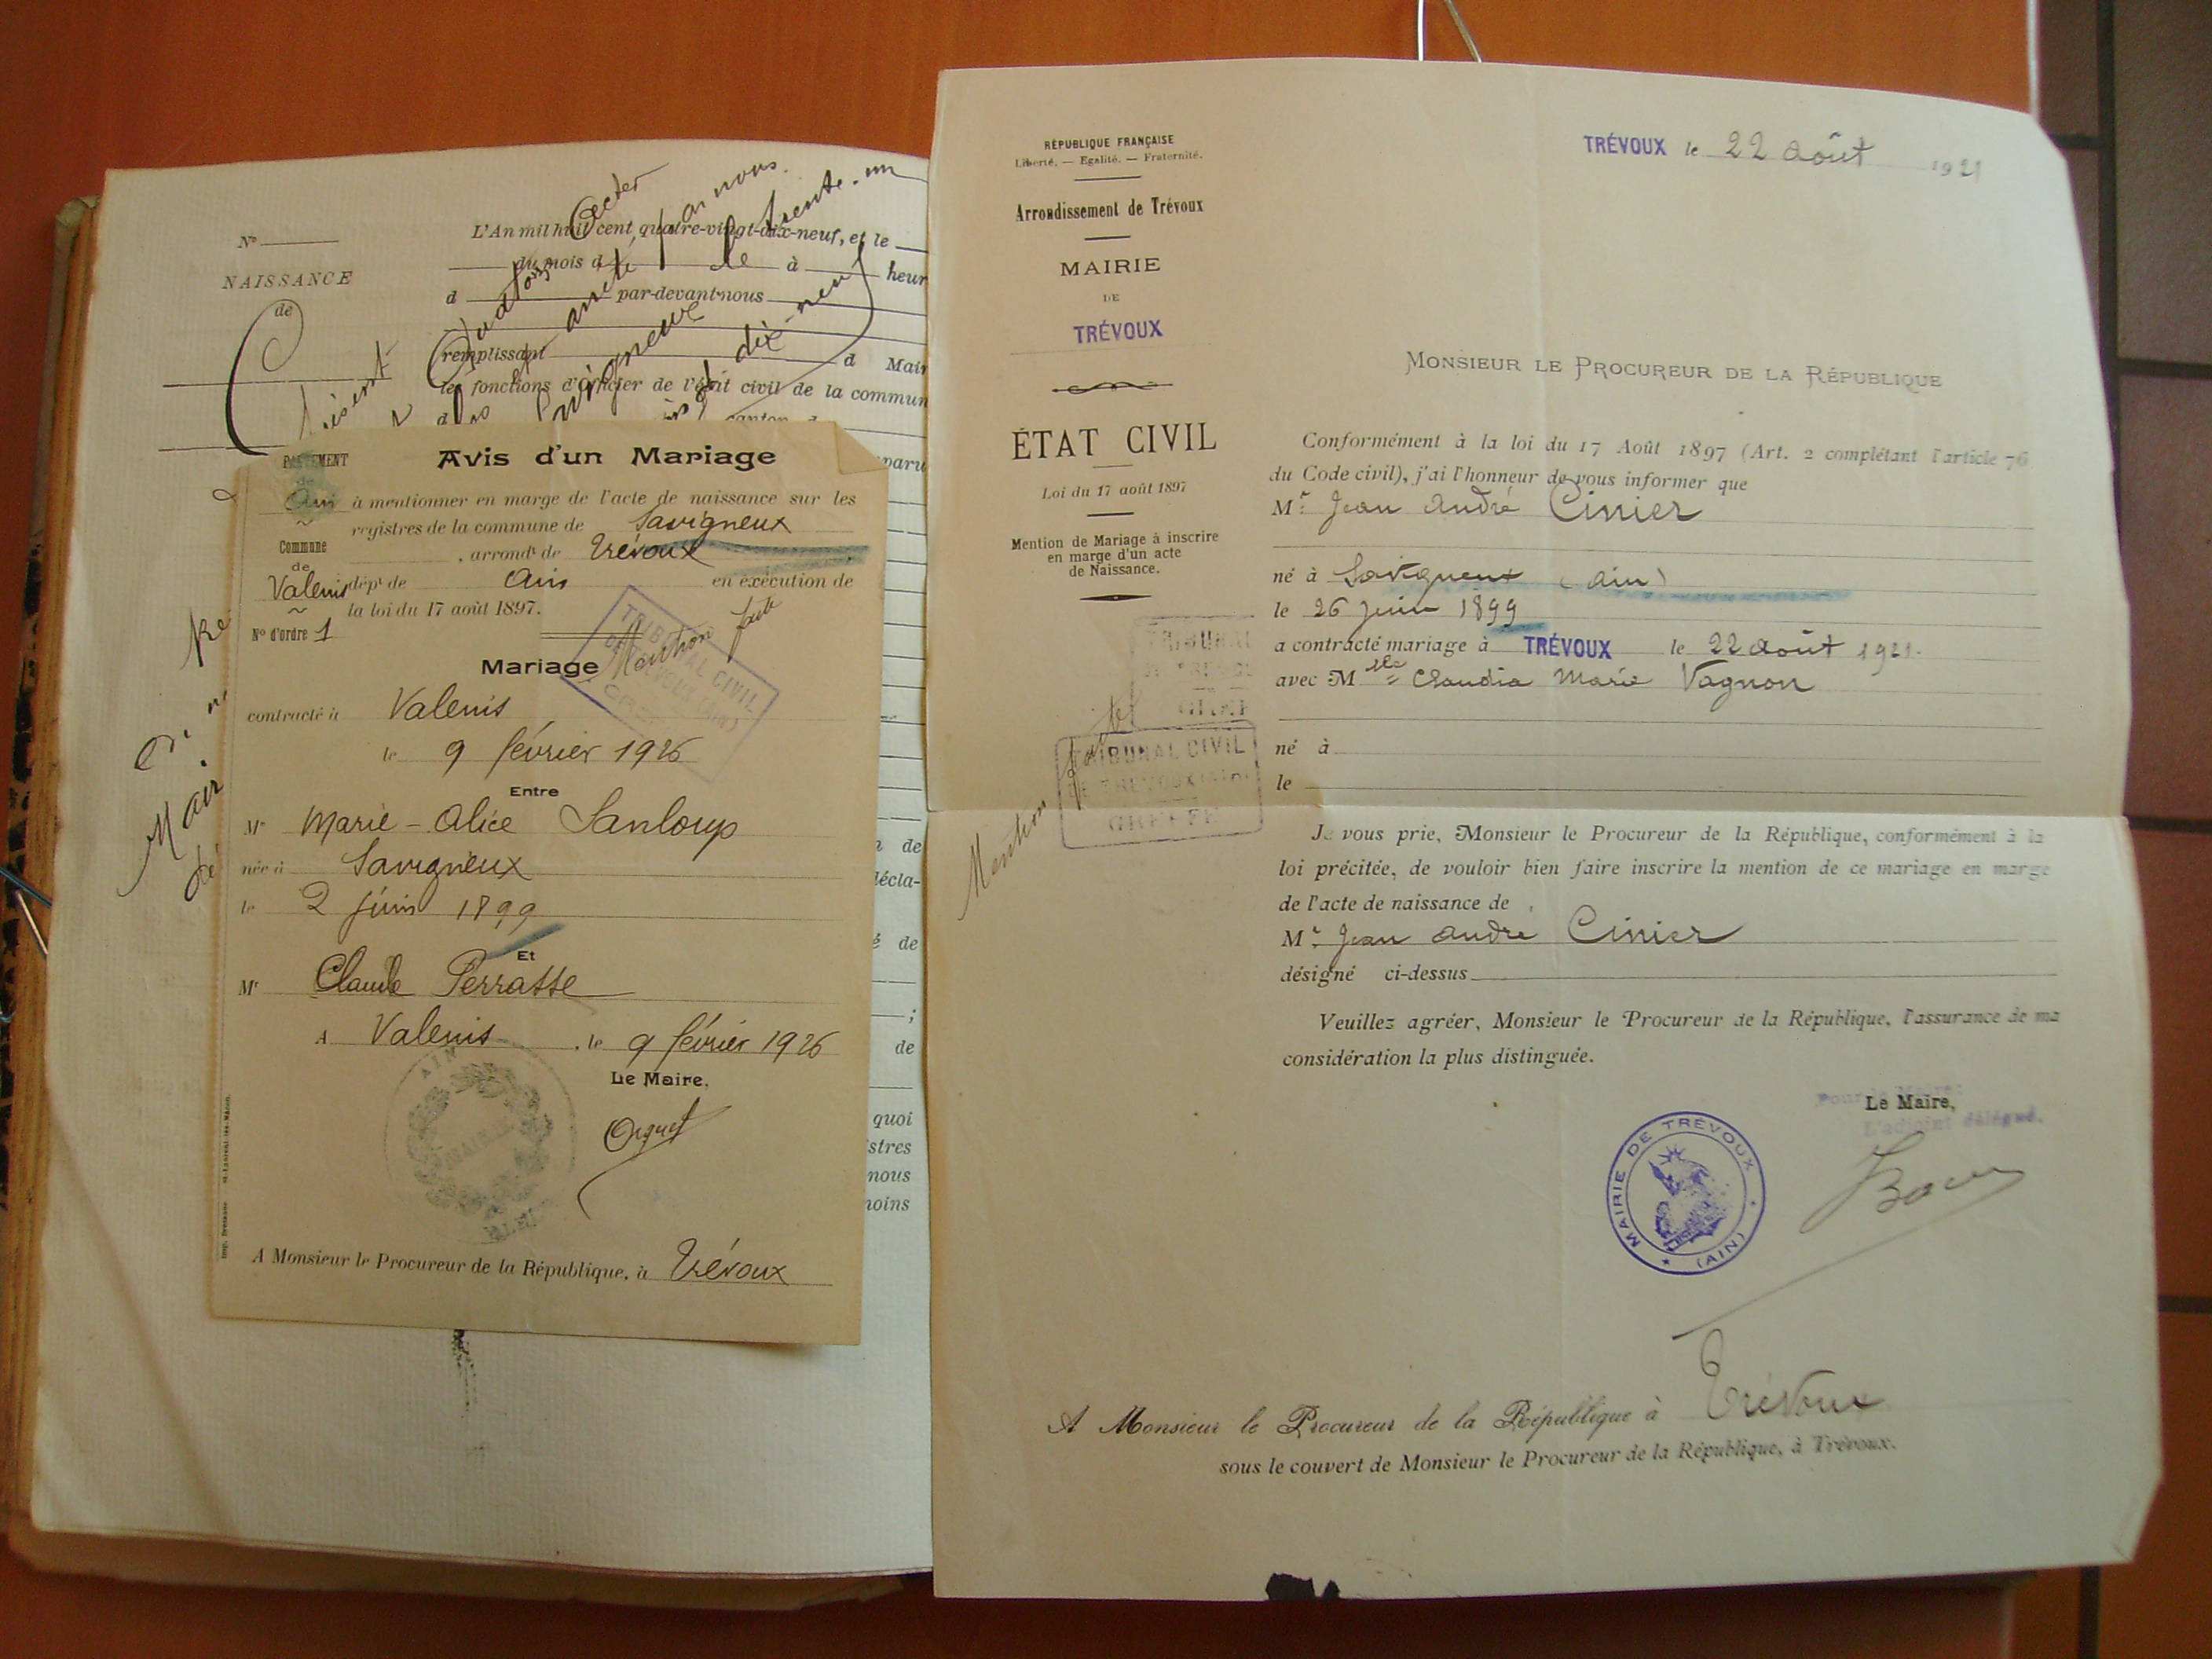 N°
NAISSANCE
de
L'An mil huit cent quatre-vingt-dix-neuf, et le
du mois d à heur
d par-devant nous
remplissant d Mair
les fonctions d'officier de l'état civil de la commun
trente-un
paru
de
décla-
é de
;
de
quoi
stres
nous
moins
Avis d'un Mariage
Ain à mentionner en marge de l'acte de naissance sur les
registres de la commune de Savigneux
Commune
de
, arrondt de Trévoux
Valenis dépt de Ain en exécution de
la loi du 17 août 1897.
N° d'ordre 1
Mention faite
TRIBUNAL CIVIL
DE TRÉVOUX (AIN)
Mariage
contracté à Valenis
le 9 février 1926
Entre
Marie-Alice Sanloup
née à Savigneux
le 2 juin 1899
Et
Mr Claude Perrasse
A Valenis, le 9 février 1926
Le Maire,
AIN
MAIRIE
A Monsieur le Procureur de la République, à Trévoux
RÉPUBLIQUE FRANÇAISE
Liberté. — Egalité. — Fraternité.
Arrondissement de Trévoux
MAIRIE
DE
TRÉVOUX
ÉTAT CIVIL
Loi du 17 août 1897
Mention de Mariage à inscrire
en marge d'un acte
de Naissance.
TRIBUNAL CIVIL
DE TREVOUX (AIN)
GREFFE
Mention faite
TRÉVOUX le 22 août 1921
MONSIEUR LE PROCUREUR DE LA RÉPUBLIQUE
Conformément à la loi du 17 Août 1897 (Art. 2 complétant l'article 76
du Code civil), j'ai l'honneur de vous informer que
Mr Jean André Cinier
né à Savigneux (Ain)
le 26 juin 1899
a contracté mariage à TRÉVOUX le 22 août 1921.
avec Mlle Claudia Marie Vagnon
né à
le
Je vous prie, Monsieur le Procureur de la République, conformément à la
loi précitée, de vouloir bien faire inscrire la mention de ce mariage en marge
de l'acte de naissance de
Mr Jean André Cinier
désigné ci-dessus
Veuillez agréer, Monsieur le Procureur de la République, l'assurance de ma
considération la plus distinguée.
Pour le Maire:
Le Maire,
L'adjoint délégué.
MAIRIE DE TRÉVOUX
(AIN)
A Monsieur le Procureur de la République à Trévoux
sous le couvert de Monsieur le Procureur de la République, à Trévoux.